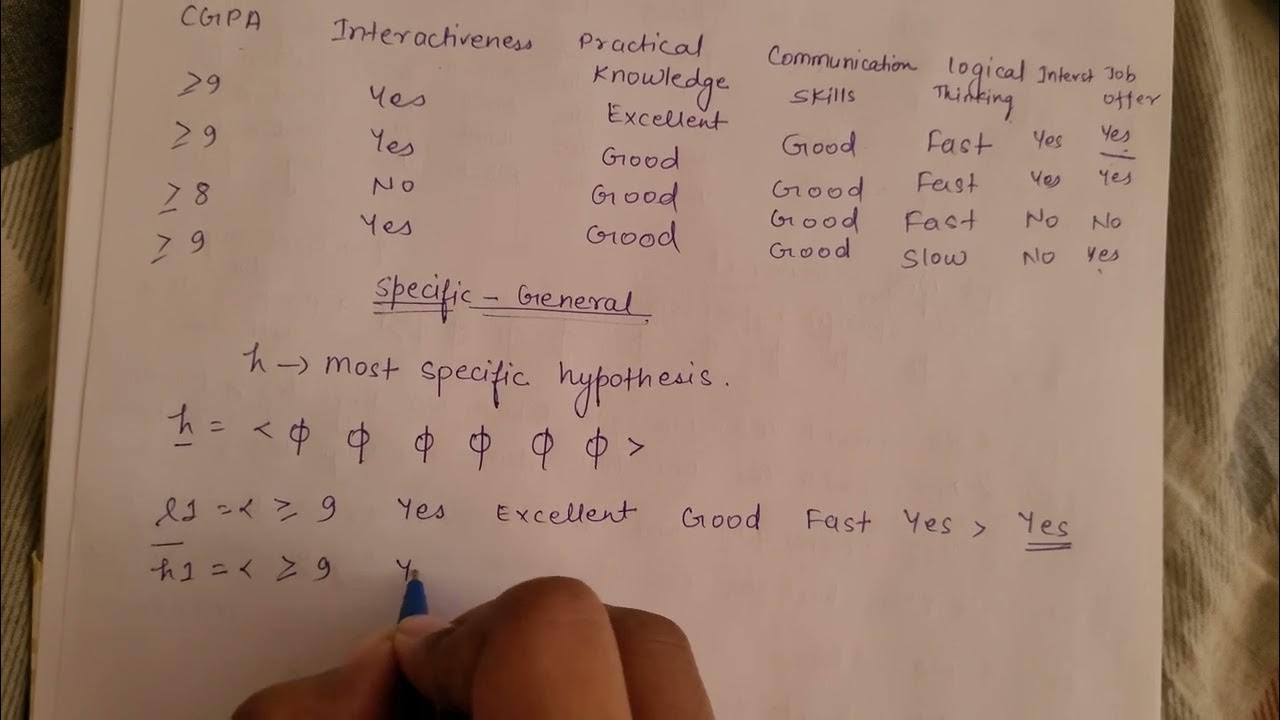 CGPA Interactiveness Practical Knowledge Communication Skills logical Thinking Interst Job offer
≥9 Yes Excellent Good Fast Yes Yes
≥9 Yes Good Good Fast Yes Yes
≥8 No Good Good Fast No No
≥9 Yes Good Good Slow No Yes
Specific - General
h → most specific hypothesis.
h = < ϕ ϕ ϕ ϕ ϕ ϕ >
l1 = < ≥ 9 Yes Excellent Good Fast Yes > Yes
h1 = < ≥ 9 Y